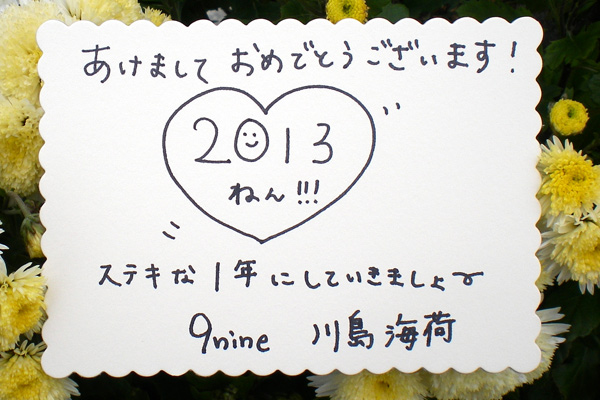 あけまして おめでとうございます!
2013
ねん!!!
ステキな1年にしていきましょー
9nine 川島海荷